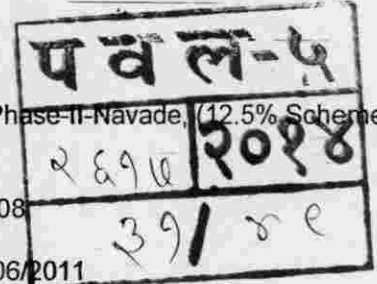 प व ल-५
Phase-II-Navade, (12.5% Scheme
२६१७ २०१४
08
३१/४९
06/2011